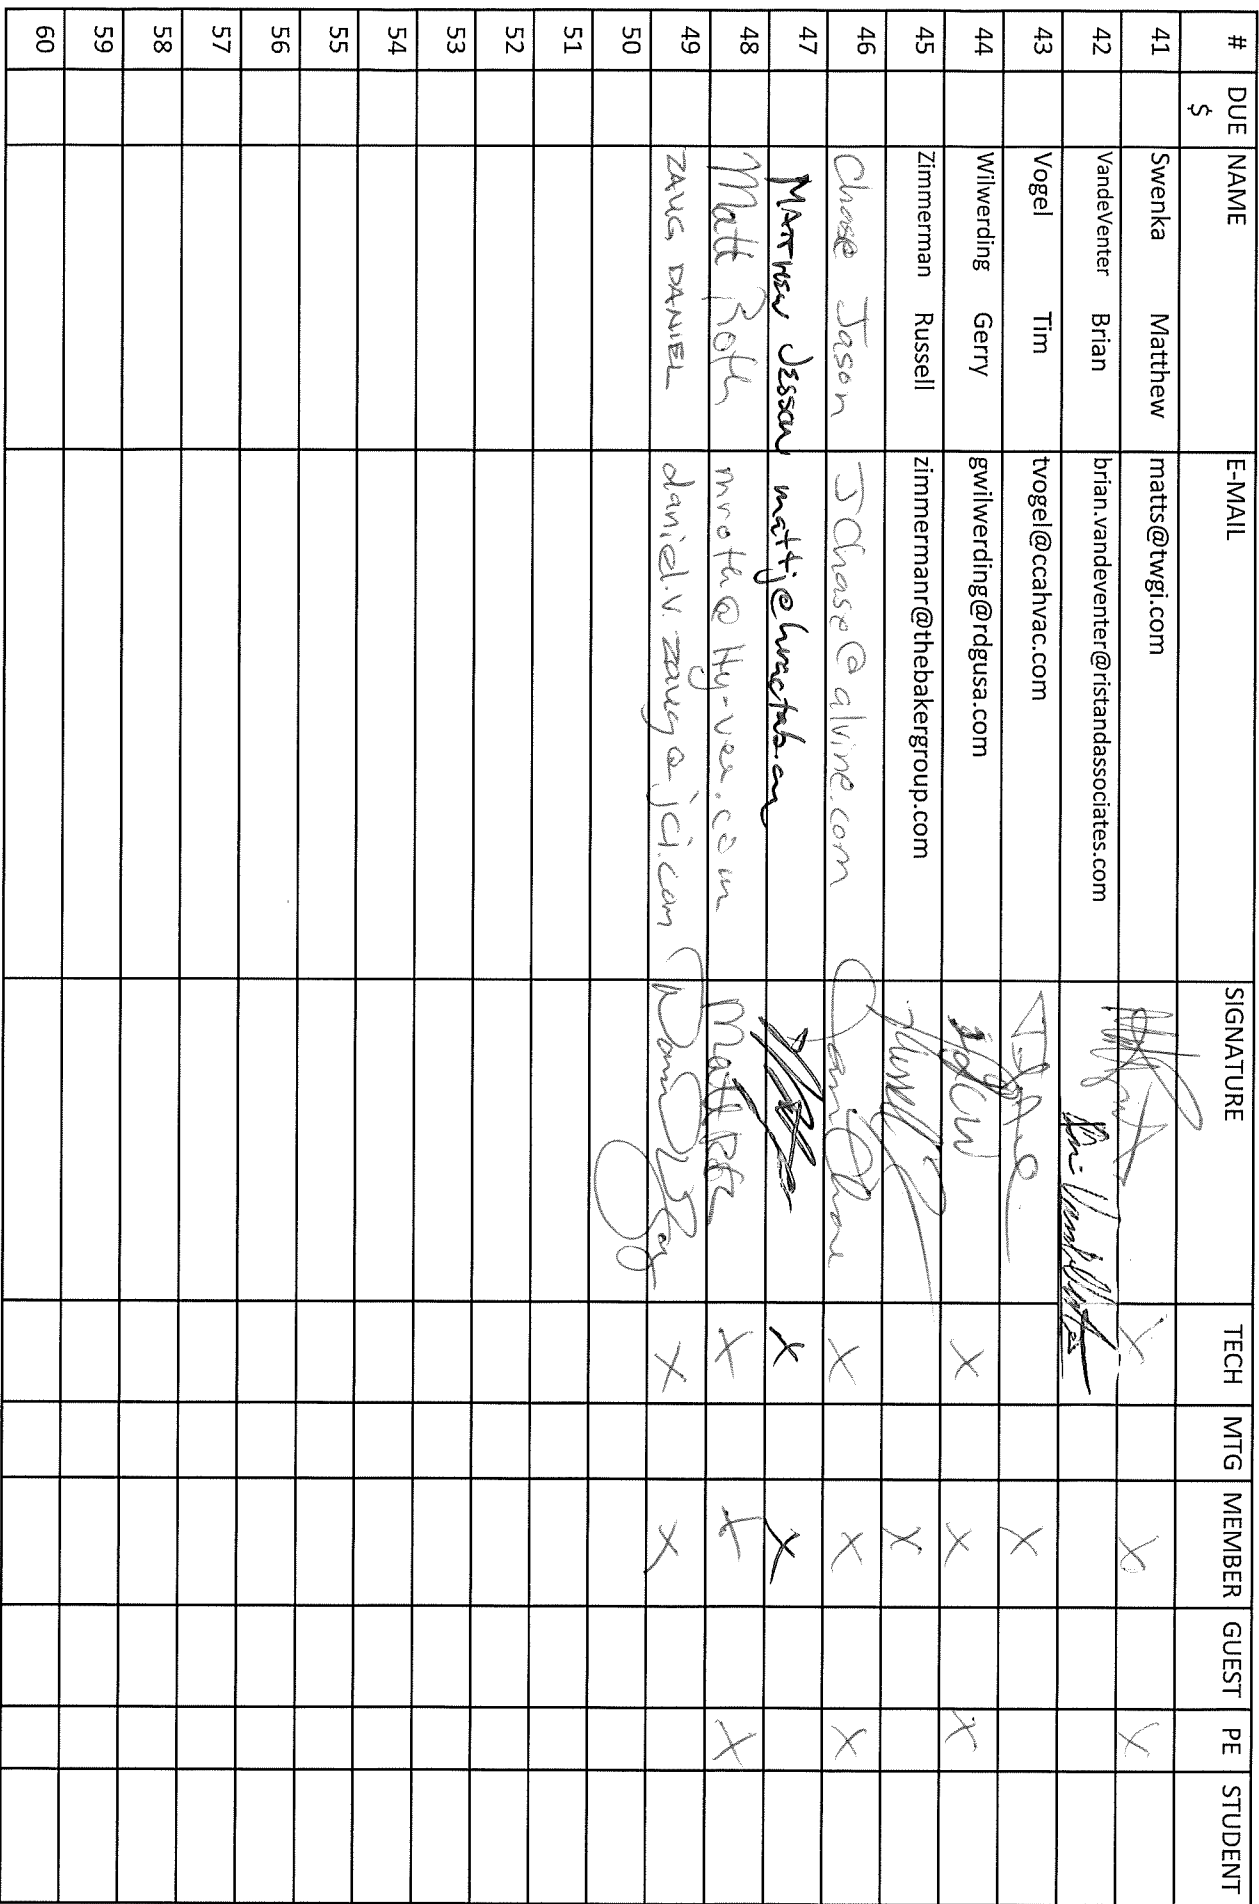 # DUE $ NAME E-MAIL SIGNATURE TECH MTG MEMBER GUEST PE STUDENT
41 Swenka Matthew matts@twgi.com X X X
42 VandeVenter Brian brian.vandeventer@ristandassociates.com
43 Vogel Tim tvogel@ccahvac.com X
44 Wilwerding Gerry gwilwerding@rdgusa.com X X X
45 Zimmerman Russell zimmermanr@thebakergroup.com X
46 Chase Jason JChase@alvine.com X X X
47 MATTHEW JESSON X X
48 Matt Roth mroth@Hy-vee.com Matt X X X
49 ZAUG, DANIEL daniel.v.zaug@jci.com X X
50
51
52
53
54
55
56
57
58
59
60